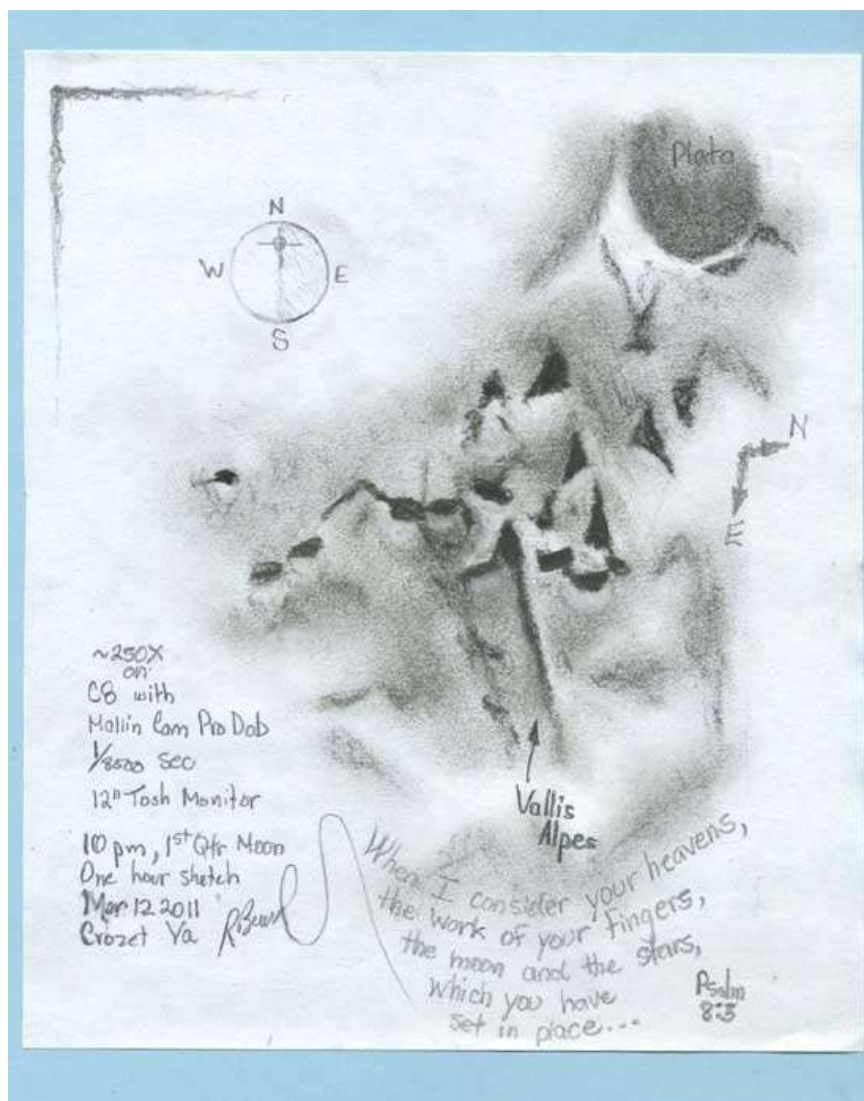 Plato
N
W E
S
N
E
~250X
on
C8 with
Mallin Cam Pro Dob
1/8000 sec
12" Tosh Monitor
10 pm, 1st Qtr Moon
One hour sketch
Mar 12 2011
Crozet Va
Vallis
Alpes
When I consider your heavens,
the work of your fingers,
the moon and the stars,
which you have
set in place...
Psalm
8:3